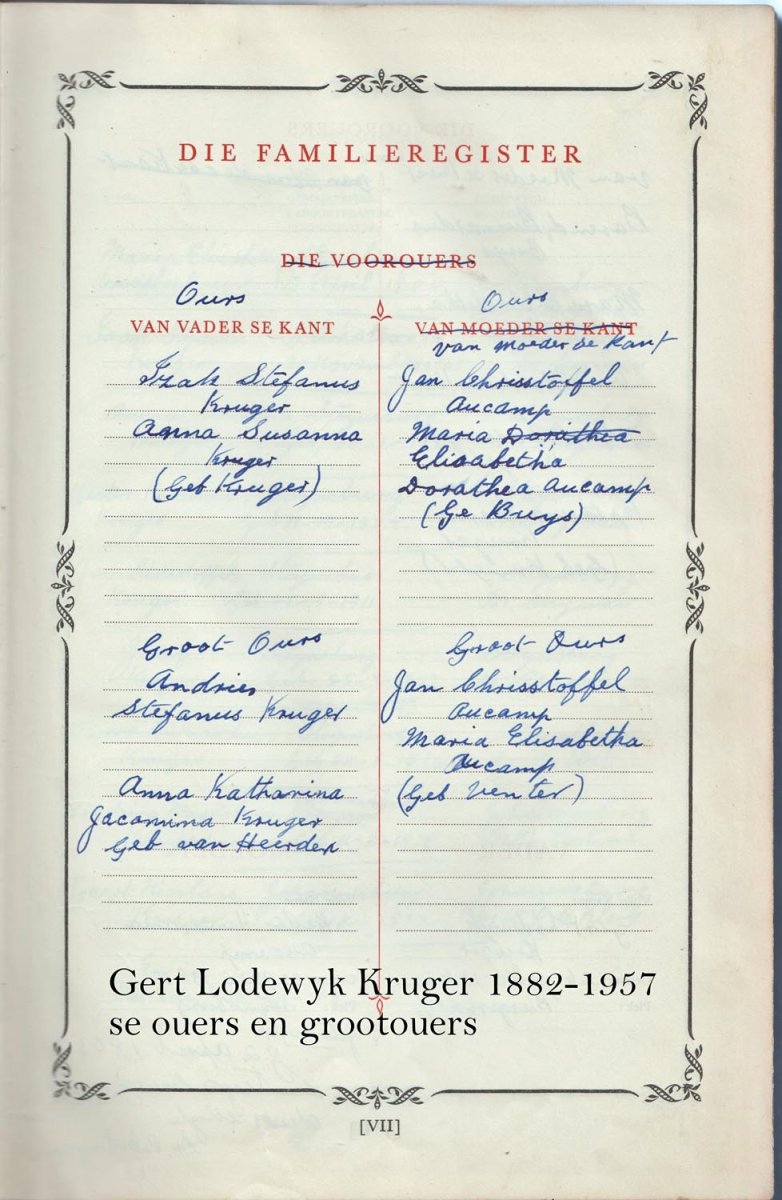 DIE FAMILIEREGISTER
DIE VOOROUERS
Ours
VAN VADER SE KANT
Izak Stefanus
Kruger
Anna Susanna
Kruger
(Geb Kruger)
Groot Ours
Andries
Stefanus Kruger
Anna Katharina
Jacomina Kruger
Geb van Heerden
Ours
VAN MOEDER SE KANT
van moeder se kant
Jan Chrisstoffel
Aucamp
Maria Dorathea
Elisabetha
Dorathea Aucamp
(Ge Buys)
Groot Ours
Jan Chrisstoffel
Aucamp
Maria Elisabetha
Aucamp
(Geb Venter)
Gert Lodewyk Kruger 1882-1957
se ouers en grootouers
[VII]